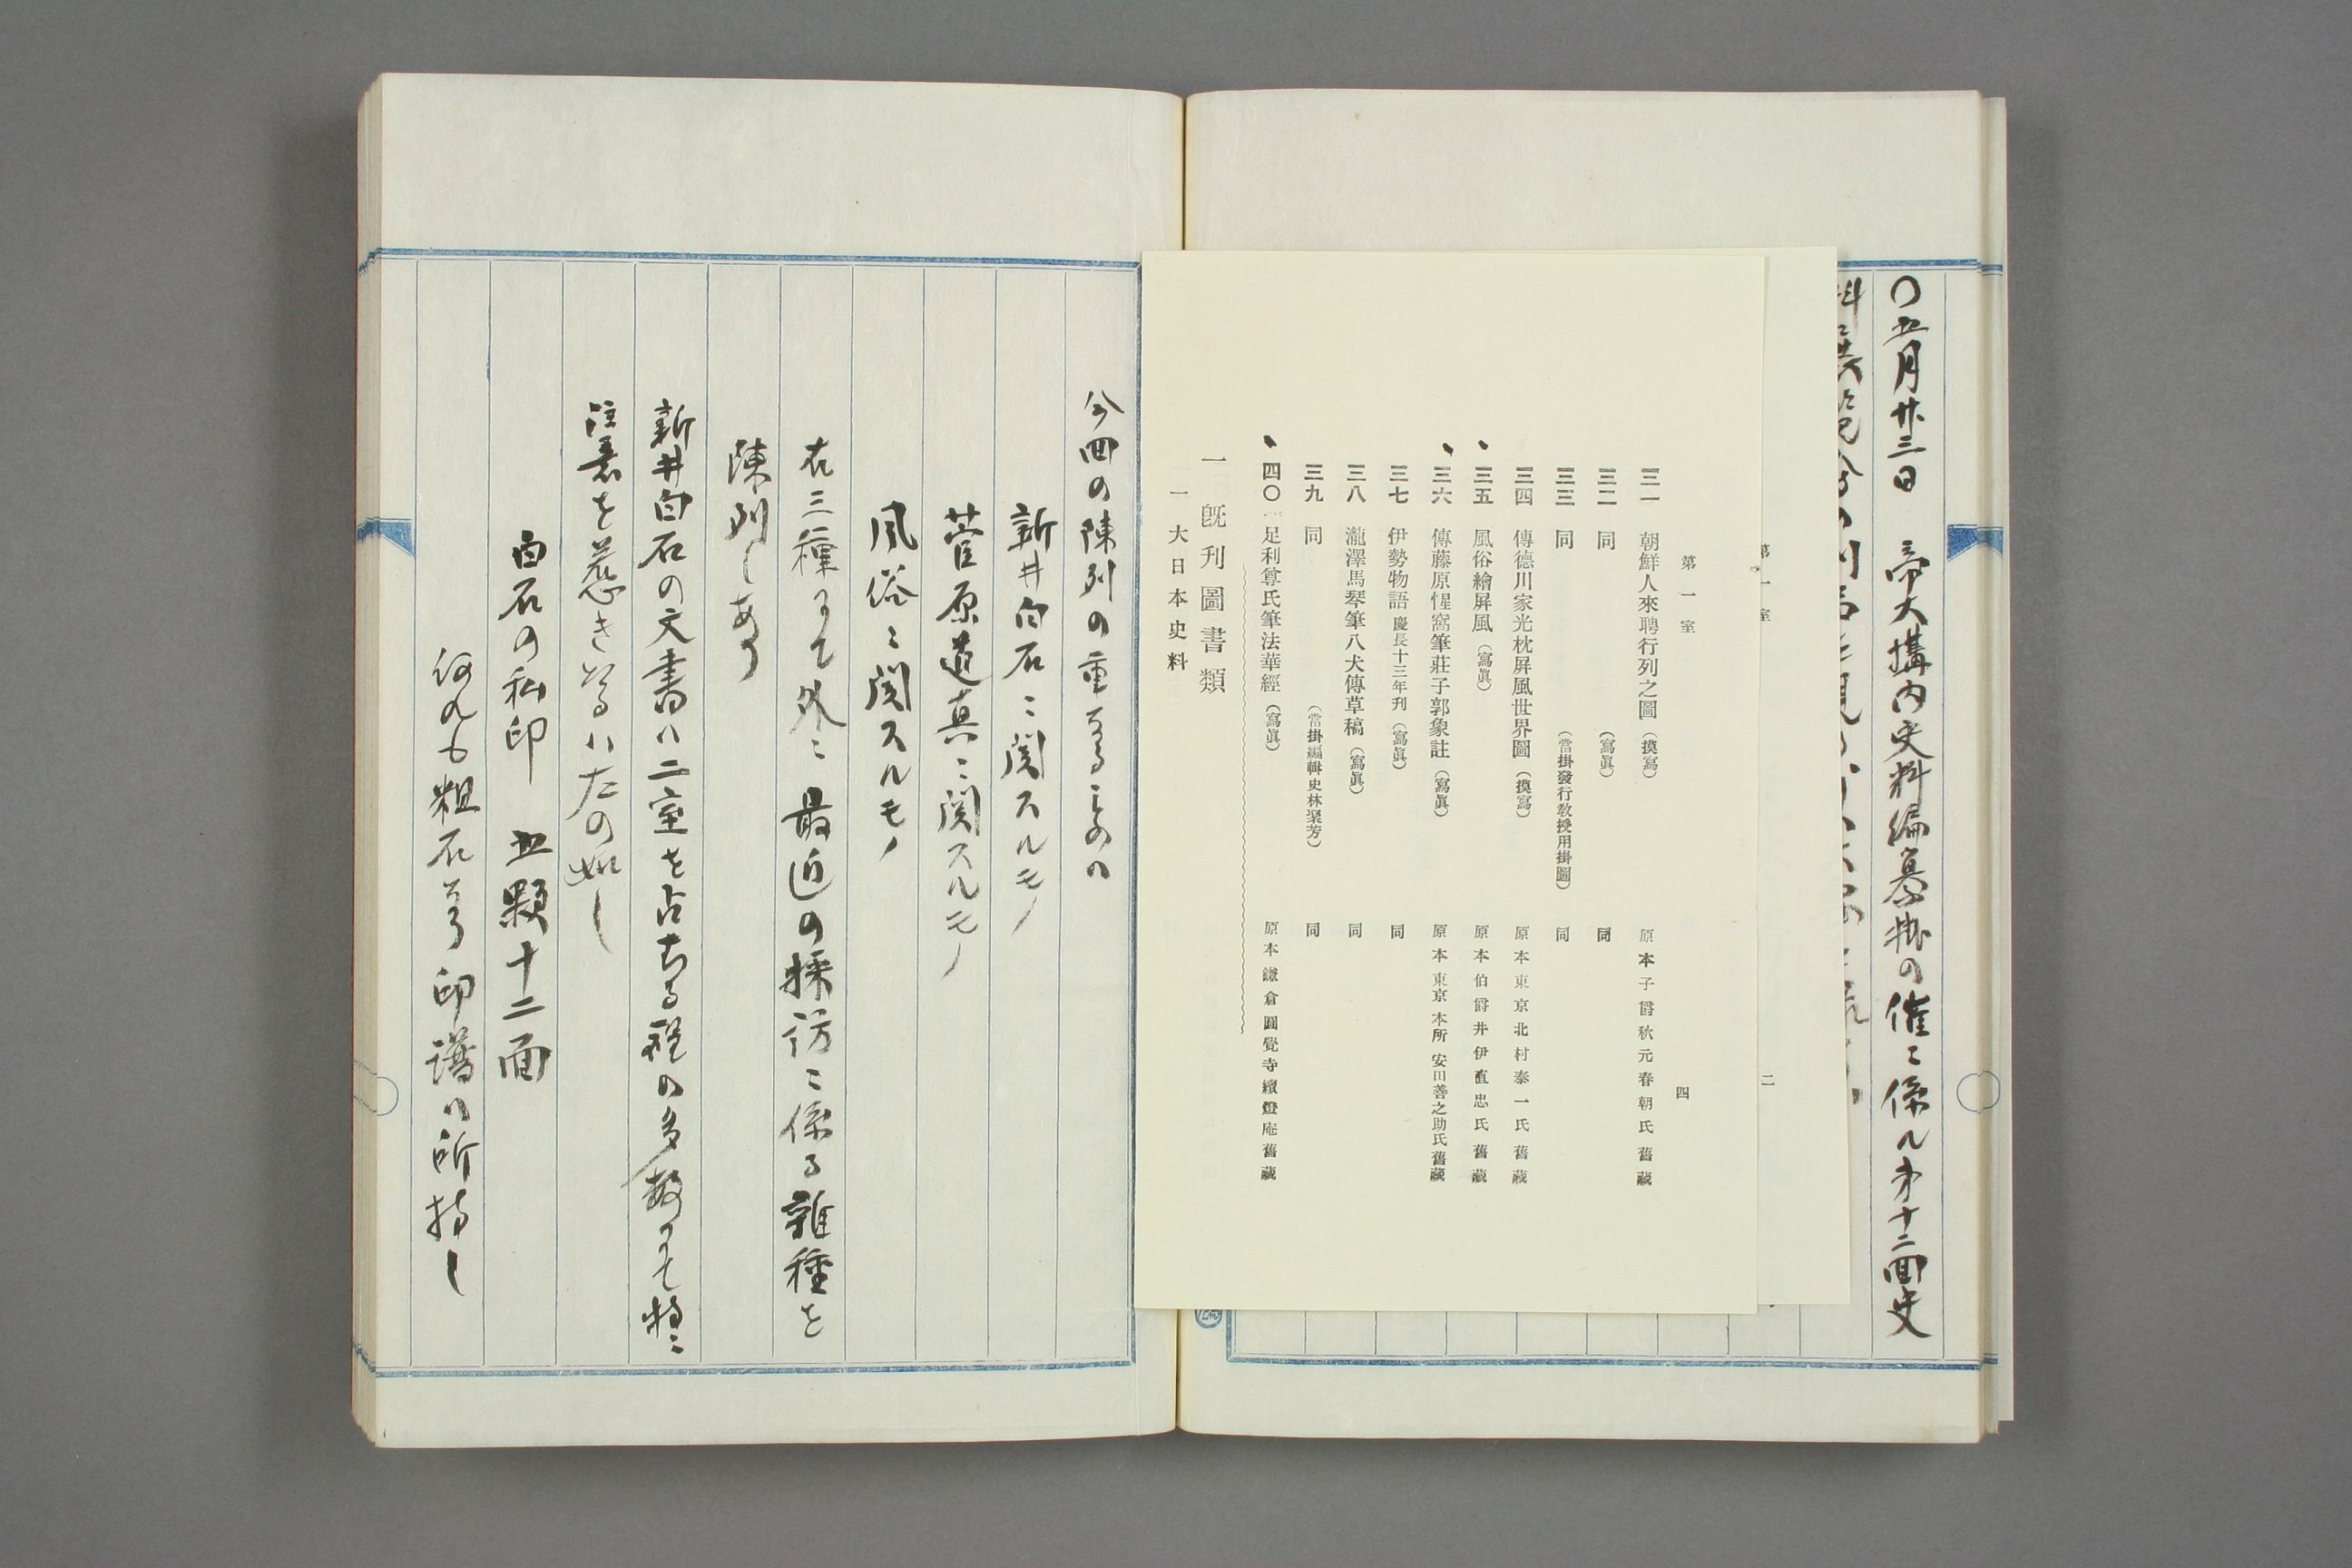 〇五月廿三日 帝大構内史料編纂掛の催ニ係ル第十二回史
料展覧会の
第一室
二
第一室
四
三一 朝鮮人來聘行列之圖 (摸寫) 原本子爵秋元春朝氏舊藏
三二 同 (寫眞) 同
三三 同 (當掛發行敎授用掛圖) 同
三四 傳德川家光枕屏風世界圖 (摸寫) 原本東京北村泰一氏舊藏
三五 風俗繪屏風 (寫眞) 原本伯爵井伊直忠氏舊藏
三六 傳藤原惺窩筆莊子郭象註 (寫眞) 原本東京本所安田善之助氏舊藏
三七 伊勢物語 慶長十三年刊 (寫眞) 同
三八 瀧澤馬琴筆八犬傳草稿 (寫眞) 同
三九 同 (當掛編輯史林聚芳) 同
四〇 足利尊氏筆法華經 (寫眞) 原本鎌倉圓覺寺續燈庵舊藏
一 旣刊圖書類
一 大日本史料
今回の陳列の重なるものハ
新井白石ニ関スルモノ
菅原道真ニ関スルモノ
風俗ニ関スルモノ
右三種にて外ニ最近の採訪ニ係る雑種を
陳列しあり
新井白石の文書ハ二室を占むる程の多数にて特ニ
注意を惹きたるハ左の如し
白石の私印 五顆十二面
何れも粗石なり印譜ハ所持し